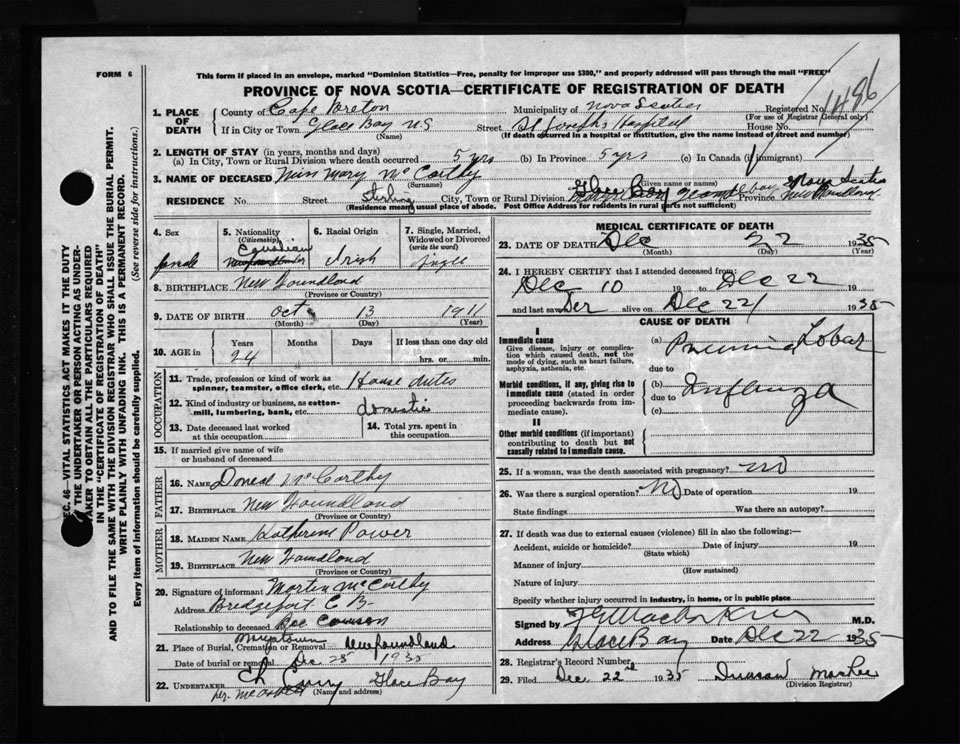 FORM 6
This form if placed in an envelope, marked "Dominion Statistics—Free, penalty for improper use $300," and properly addressed will pass through the mail "FREE"
PROVINCE OF NOVA SCOTIA—CERTIFICATE OF REGISTRATION OF DEATH
1486
1. PLACE OF DEATH
County of Cape Breton Municipality of Nova Scotia Registered No.
(For use of Registrar General only)
If in City or Town Glace Bay N.S Street St Josephs Hospital House No.
(Name) (If death occurred in a hospital or institution, give the name instead of street and number)
2. LENGTH OF STAY (in years, months and days)
(a) In City, Town or Rural Division where death occurred 5 yrs (b) In Province 5 yrs (c) In Canada (if immigrant)
3. NAME OF DECEASED Miss Mary McCarthy
(Surname) (Given name or names)
RESIDENCE No. Street Sterling City, Town or Rural Division Glace Bay Province Nova Scotia Newfoundland
(Residence means usual place of abode. Post Office Address for residents in rural parts not sufficient)
4. Sex
female
5. Nationality (Citizenship)
Canadian
Newfoundlander
6. Racial Origin
Irish
7. Single, Married, Widowed or Divorced (write the word)
Single
8. BIRTHPLACE New Foundland
(Province or Country)
9. DATE OF BIRTH Oct 13 1911
(Month) (Day) (Year)
10. AGE in Years Months Days If less than one day old
24 hrs. or min.
OCCUPATION
11. Trade, profession or kind of work as spinner, teamster, office clerk, etc. House duties
12. Kind of industry or business, as cotton-mill, lumbering, bank, etc. domestic
13. Date deceased last worked at this occupation
14. Total yrs. spent in this occupation
15. If married give name of wife or husband of deceased
FATHER
16. NAME McCarthy
17. BIRTHPLACE New Foundland
(Province or Country)
MOTHER
18. MAIDEN NAME Katherine Power
19. BIRTHPLACE New Foundland
(Province or Country)
20. Signature of informant Martin McCarthy
Address Bridgeport C B
Relationship to deceased
21. Place of Burial, Cremation or Removal Newfoundland
Date of burial or removal Dec 25 1935
22. UNDERTAKER Glace Bay
(Name and address)
MEDICAL CERTIFICATE OF DEATH
23. DATE OF DEATH Dec 22 1935
(Month) (Day) (Year)
24. I HEREBY CERTIFY that I attended deceased from:
Dec 10 19 to Dec 22 19
and last saw her alive on Dec 22 1935
CAUSE OF DEATH
I
Immediate cause
Give disease, injury or complication which caused death, not the mode of dying, such as heart failure, asphyxia, asthenia, etc.
(a) Pneumonia Lobar
due to
Morbid conditions, if any, giving rise to immediate cause (stated in order proceeding backwards from immediate cause).
(b) Influenza
due to
(c)
II
Other morbid conditions (if important) contributing to death but not causally related to immediate cause.
25. If a woman, was the death associated with pregnancy? No
26. Was there a surgical operation? No Date of operation 19
State findings Was there an autopsy?
27. If death was due to external causes (violence) fill in also the following:
Accident, suicide or homicide? Date of injury 19
(State which)
Manner of injury
(How sustained)
Nature of injury
Specify whether injury occurred in industry, in home, or in public place
Signed by M.D.
Address Glace Bay Date Dec 22 1935
28. Registrar's Record Number
29. Filed Dec 22nd 1935 Duncan
(Division Registrar)
SEC. 46—VITAL STATISTICS ACT MAKES IT THE DUTY
OF THE UNDERTAKER OR PERSON ACTING AS UNDER-
TAKER TO OBTAIN ALL THE PARTICULARS REQUIRED
IN THE "CERTIFICATE OF REGISTRATION OF DEATH"
AND TO FILE THE SAME WITH THE DIVISION REGISTRAR WHO SHALL ISSUE THE BURIAL PERMIT.
WRITE PLAINLY WITH UNFADING INK. THIS IS A PERMANENT RECORD.
Every item of information should be carefully supplied. (See reverse side for instructions.)